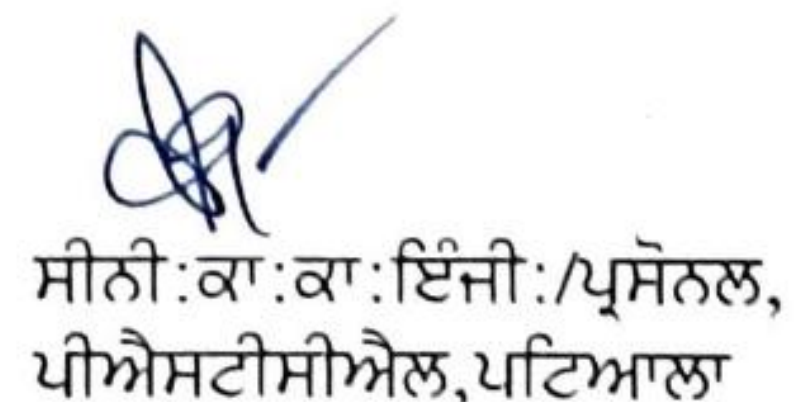 ਸੀਨੀ:ਕਾ:ਕਾ:ਇੰਜੀ:/ਪ੍ਰਸੋਨਲ,
ਪੀਐਸਟੀਸੀਐਲ,ਪਟਿਆਲਾ